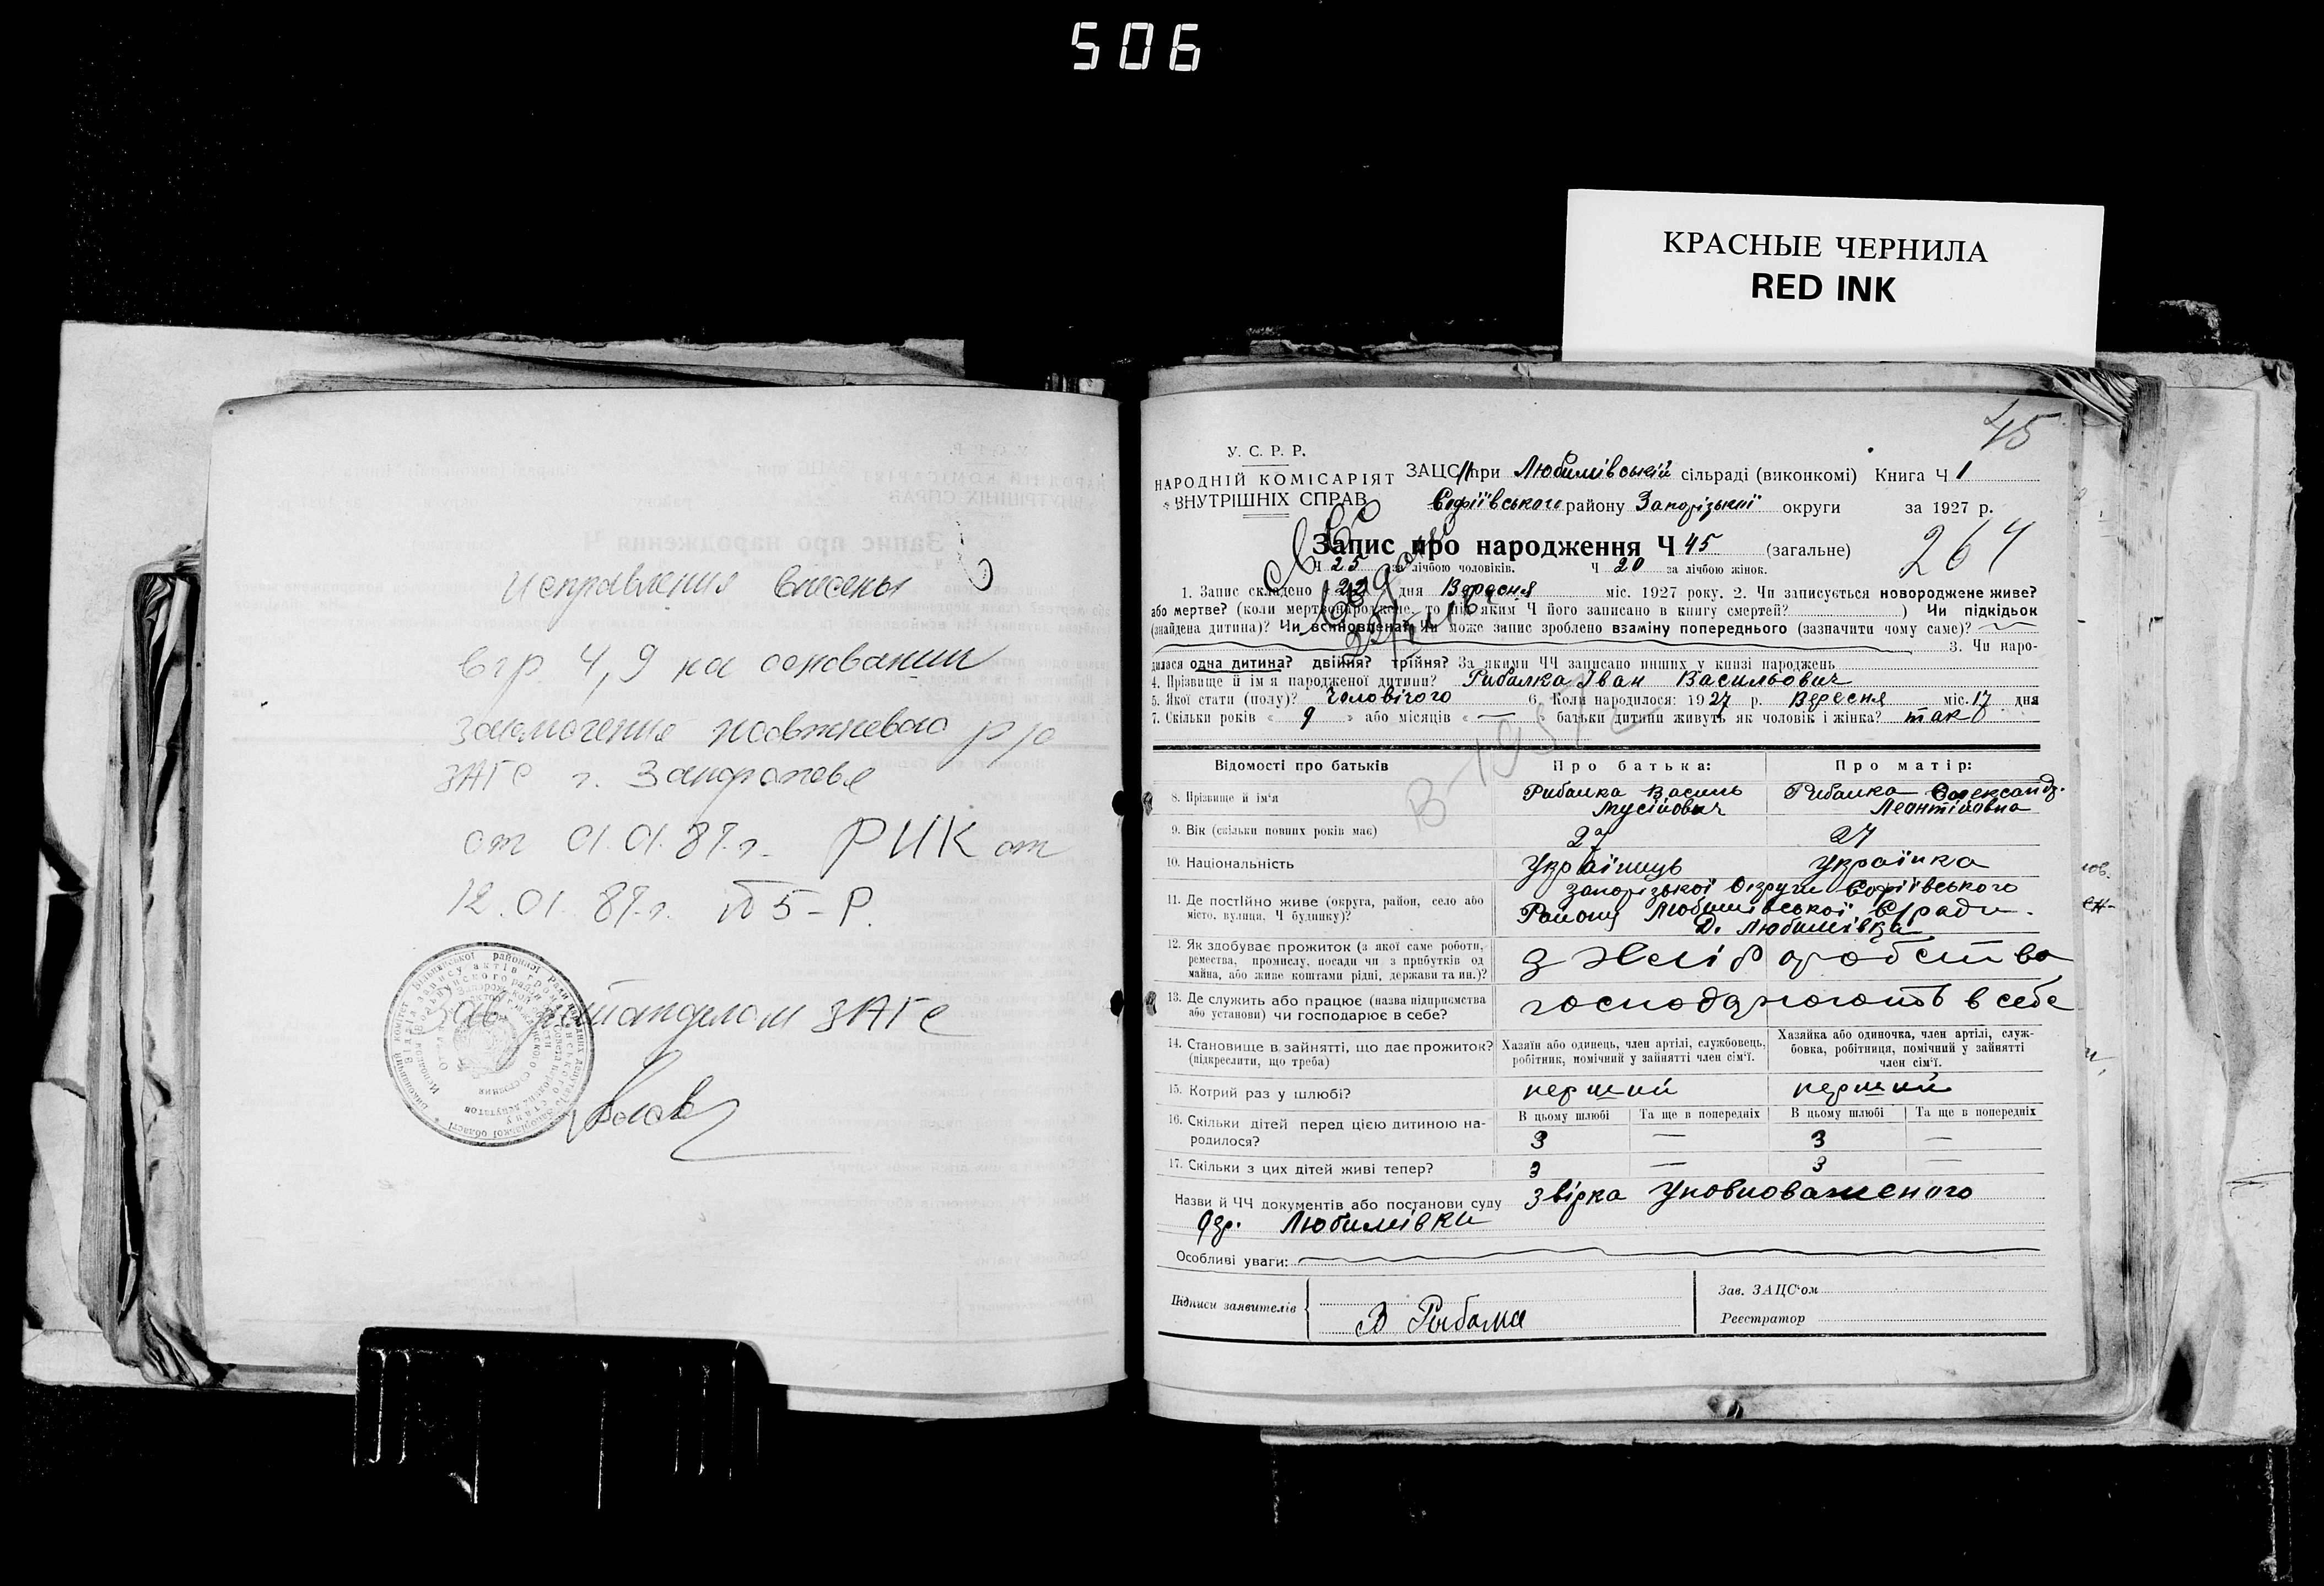 506
КРАСНЫЕ ЧЕРНИЛА
RED INK
Исправления внесены
в гр 4, 9 на основании
заключения Жовтневого р/о
ЗАГС г. Запорожье
от 01.01.87г. РИК от
12.01.87г. № 5-Р.
Зав райотделом ЗАГС
45
У. С. Р. Р.
НАРОДНІЙ КОМІСАРІЯТ
ВНУТРІШНІХ СПРАВ
ЗАЦС при Любимівській сільраді (виконкомі) Книга Ч 1
Софіївського району Запорізької округи за 1927 р.
Запис про народження Ч 45 (загальне)
264
Ч 25 за лічбою чоловіків. Ч 20 за лічбою жінок.
1. Запис складено 22 дня Вересня міс. 1927 року. 2. Чи записується новороджене живе?
або мертве? (коли мертвонароджене, то під яким Ч його записано в книгу смертей? ) Чи підкідьок
(знайдена дитина)? Чи всиновлена? Чи може запис зроблено взаміну попереднього (зазначити чому саме)?
3. Чи наро-
дилася одна дитина? двійня? трійня? За якими ЧЧ записано инших у книзі народжень
4. Прізвище й ім'я народженої дитини? Рибалка Іван Васильович
5. Якої стати (полу)? Чоловічого 6. Коли народилося: 1927 р. Вересня міс. 17 дня
7. Скільки років « 9 » або місяців « — » батьки дитини живуть як чоловік і жінка? так
Відомості про батьків Про батька: Про матір:
8. Прізвище й ім'я Рибалка Василь Мусійович Рибалка Олександ. Леонтійовна
9. Вік (скільки повних років має) 27 27
10. Національність Українець Українка
11. Де постійно живе (округа, район, село або
місто, вулиця, Ч будинку)?
Запорізької Округи Софіївського
Району Любимівської С/ради.
Д. Любимівка
12. Як здобуває прожиток (з якої саме роботи,
ремества, промислу, посади чи з прибутків од
майна, або живе коштами рідні, держави та ин.)?
з Хліборобства
13. Де служить або працює (назва підприємства
або установи) чи господарює в себе?
господарюють в себе
14. Становище в зайнятті, що дає прожиток?
(підкреслити, що треба)
Хазяїн або одинець, член артілі, службовець,
робітник, помічний у зайнятті член сім'ї.
Хазяйка або одиночка, член артілі, служ-
бовка, робітниця, помічний у зайнятті
член сім'ї.
15. Котрий раз у шлюбі? перший перший
16. Скільки дітей перед цією дитиною на-
родилося?
В цьому шлюбі Та ще в попередніх В цьому шлюбі Та ще в попередніх
3 — 3 —
17. Скільки з цих дітей живі тепер? 3 — 3 —
Назви й ЧЧ документів або постанови суду Звірка Уповноваженого
Любимівки
Особливі уваги:
Підписи заявителів
В Рибалка
Зав. ЗАЦС'ом
Реєстратор